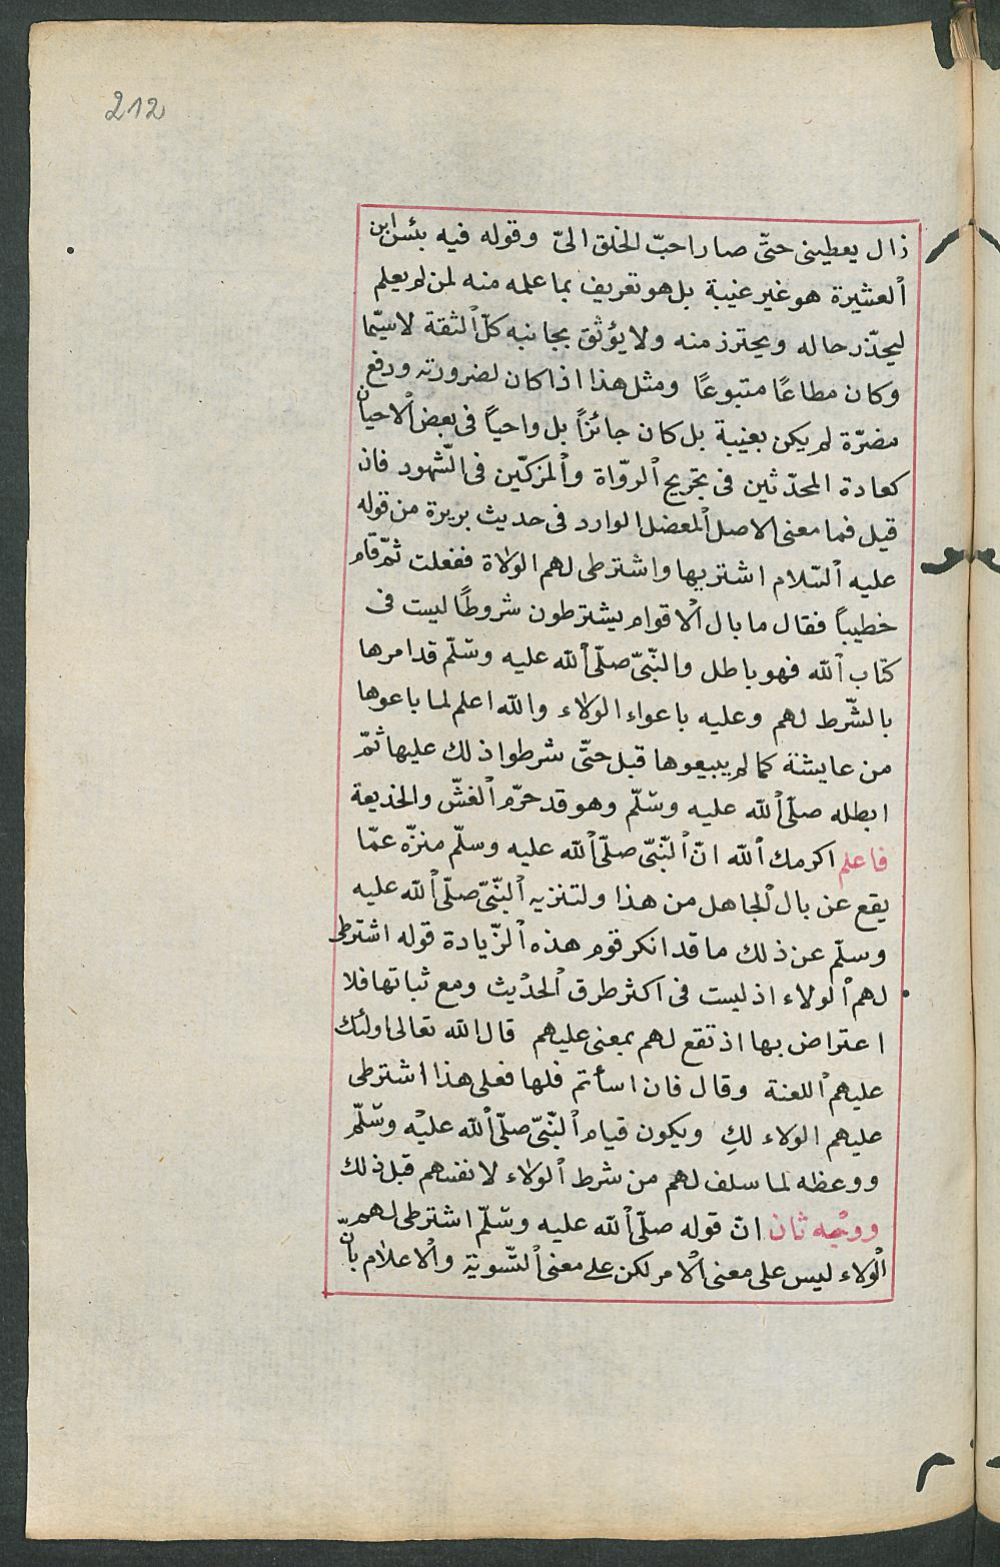 212
زال يعطينى حتّى صار احبّ الخلق الىّ وقوله فيه بئس ابن
ٱلعشيرة هو غير غيبة بل هو تعريف بما علمه منه لمن لم يعلم
ليحذّر حاله ويحترز منه ولا يؤثق بجانبه كلّ ٱلثقة لاسيّما
وكان مطاعًا متبوعًا ومثل هذا اذا كان لضرورته ودفع
مضرّة لم يكن بغيبة بل كان جائزاً بل واحياً فى بعض ٱلاحيان
كعادة المحدّثين فى تجريح ٱلروّاة وٱلمزكّين فى الشّهود فان
قيل فما معنى الاصل ٱلمعضل الوارد فى حديث بريرة من قوله
عليه ٱلسّلام اشتريها واشترطى لهم الولاة ففعلت ثمّ قام
خطيباً فقال ما بال ٱلاقوام يشترطون شروطًا ليست فى
كتاب ٱلله فهو باطل والنّبىّ صلّى ٱلله عليه وسّلّم قد امرها
بالشّرط لهم وعليه باعواء الولاء والله اعلم لما باعوها
من عايشة كما لم يبيعوها قبل حتّى شرطوا ذلك عليها ثمّ
ابطله صلّى ٱلله عليه وسّلّم وهو قد حرّم ٱلغشّ والخديعة
فاعلم اكرمك ٱلله انّ ٱلنّبىّ صلّى ٱلله عليه وسلّم منزّه عمّا
يقع عن بال ٱلجاهل من هذا ولتنزيه ٱلنّبىّ صلّى ٱلله عليه
وسلّم عن ذلك ما قد انكر قوم هذه ٱلزّيادة قوله اشترطى
لهم ٱلولاء اذ ليست فى اكثر طرق ٱلحديث ومع ثباتها فلا
اعتراض بها اذ تقع لهم بمعنى عليهم قال الله تعالى اولئك
عليهم ٱللعنة وقال فان اسأتم فلها فعلى هذا اشترطى
عليهم الولاء لكِ ويكون قيام ٱلنّبىّ صلّى ٱلله عليه وسّلّم
ووعظه لما سلف لهم من شرط ٱلولاء لانفسهم قبل ذلك
ووجه ثان انّ قوله صلّى ٱلله عليه وسّلّم اشترطى لهم
ٱلولاء ليس على معنى ٱلامر لكن على معنى ٱلتّسوية وٱلاعلام بانّ